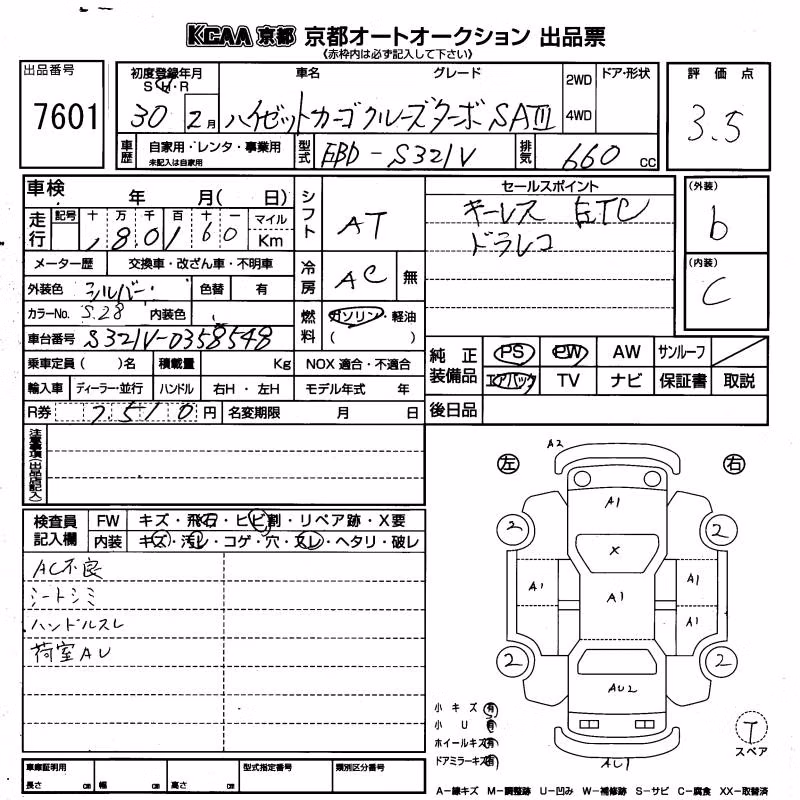 KCAA 京都 京都オートオークション 出品票
(赤枠内は必ず記入して下さい)
出品番号
7601
初度登録年月
S・H・R
30 2月
車名 グレード
ハイゼットカーゴクルーズターボ SAⅢ
2WD
4WD
ドア・形状
評価点
3.5
車歴
自家用・レンタ・事業用
未記入は自家用
型式
EBD-S321V
排気
660 cc
車検 年 月( 日)
走行
記号 十 万 千 百 十 一 マイル
80160 Km
メーター歴 交換車・改ざん車・不明車
外装色 シルバー 色替 有
カラーNo. S28 内装色
車台番号 S321V-0358548
乗車定員( )名 積載量 Kg
輸入車 ディーラー・並行 ハンドル 右H・左H
R券 7510 円 名変期限 月 日
シフト
AT
冷房
AC 無
燃料
ガソリン・軽油
( )
NOX 適合・不適合
モデル年式 年
セールスポイント
キーレス ETC
ドラレコ
(外装)
b
(内装)
C
純正装備品
PS PW AW サンルーフ
エアバック TV ナビ 保証書 取説
後日品
注意事項(出品店記入)
検査員記入欄
FW キズ・飛石・ヒビ割・リペア跡・X要
内装 キズ・汚レ・コゲ・穴・スレ・ヘタリ・破レ
AC不良
シートシミ
ハンドルスレ
荷室AU
左 右
A2
A1
2 2
X
A1 A1
A1
A1
2 2
AU2
AU1
小キズ 有
小U 有
ホイールキズ 有
ドアミラーキズ 有
T
スペア
車庫証明用
長さ cm 幅 cm 高さ cm
型式指定番号
類別区分番号
A−線キズ M−調整跡 U−凹み W−補修跡 S−サビ C−腐食 XX−取替済